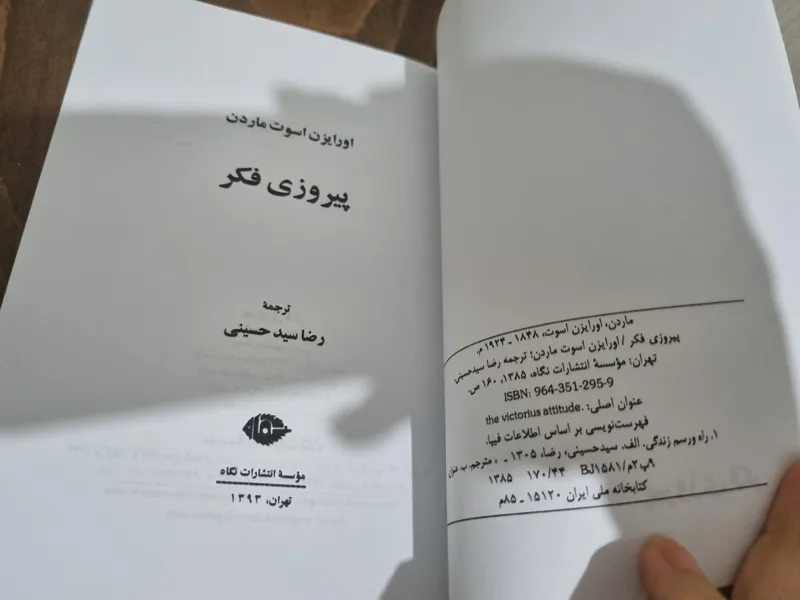 اورایزن اسوت ماردن
پیروزی فکر
ترجمهٔ
رضا سیدحسینی
نگاه
مؤسسهٔ انتشارات نگاه
تهران، ۱۳۹۳
ماردن، اورایزن اسوت، ۱۸۴۸ ـ ۱۹۲۴ م.
پیروزی فکر / اورایزن اسوت ماردن؛ ترجمه رضا سیدحسینی
تهران: مؤسسهٔ انتشارات نگاه، ۱۳۸۵، ۱۶۰ ص.
ISBN: 964-351-295-9
عنوان اصلی: .the victorius attitude
فهرست‌نویسی بر اساس اطلاعات فیپا.
۱. راه ورسم زندگی. الف. سیدحسینی، رضا، ۱۳۰۵ ـ ، مترجم. ب. عنوان
۹پ۲م/BJ۱۵۸۱ ۱۷۰/۴۴ ۱۳۸۵
کتابخانه ملی ایران ۱۵۱۲۰ ـ ۸۵م